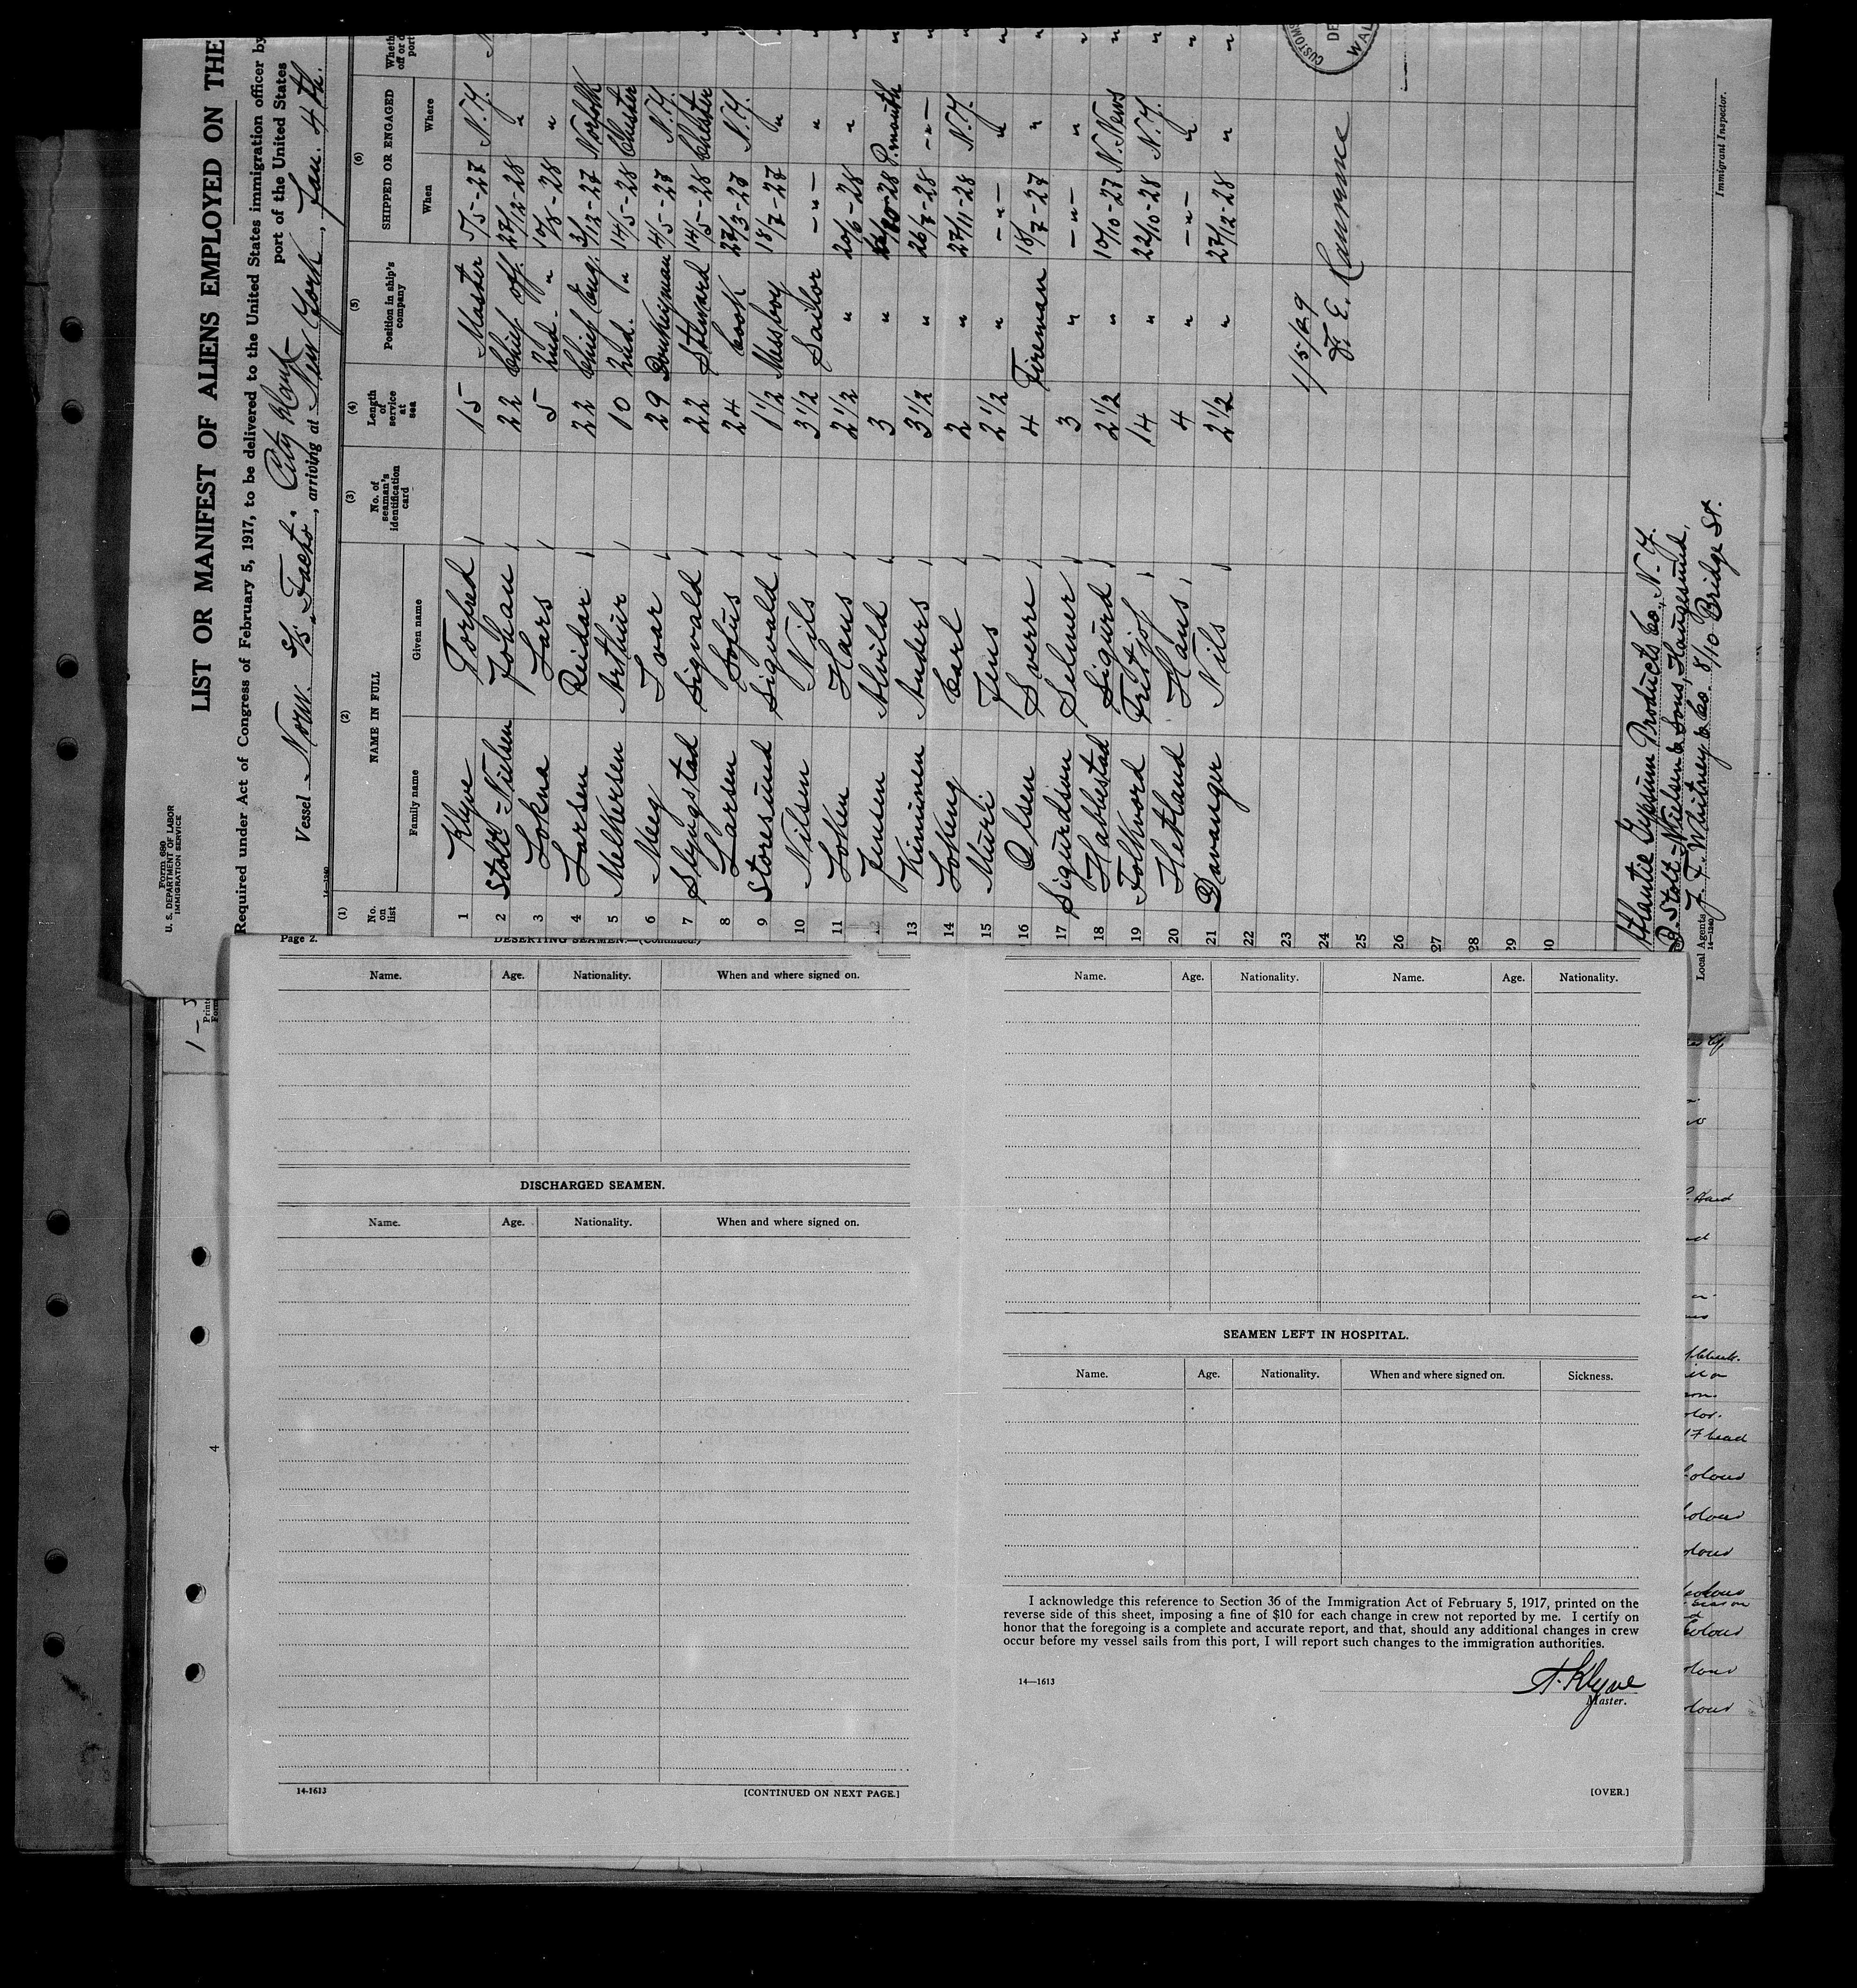 Form 680
U. S. DEPARTMENT OF LABOR
IMMIGRATION SERVICE
LIST OR MANIFEST OF ALIENS EMPLOYED ON THE
Required under Act of Congress of February 5, 1917, to be delivered to the United States immigration officer by
port of the United States
Vessel Norw. s/s "Facto". City , arriving at New York, Jan. 4th.
14—1240
(1) (2) (3) (4) (5) (6)
No. on list NAME IN FULL No. of seaman's identification card Length of service at sea Position in ship's company SHIPPED OR ENGAGED
Family name Given name When Where
1 Klyve Torlied 15 Master 5/5-27 N.Y.
2 Stolt-Nielsen Johan 22 Chief off. 27/12-28 "
3 Lokna Lars 5 2nd. " 10/8-28 "
4 Larsen Reidar 22 Chief Eng. 3/12-27 Norfolk
5 Melkersen Arthur 10 2nd. " 14/5-28 Chester
6 Meeg Ivar 29 Donkeyman 4/5-27 N.Y.
7 Styngstad Sigvald 22 Steward 14/5-28 Chester
8 Larsen Sofus 24 Cook 27/3-23 N.Y.
9 Storesund Sigvald 1 1/2 Messboy 18/7-27 "
10 Nilsen Nils 3 1/2 Sailor -"- "
11 Loken Hans 2 1/2 " 20/6-28 "
12 Jensen Alvild 3 " -28 P.mouth
13 Kinninen Anders 3 1/2 " 26/7-28 -"-
14 Lokeng Carl 2 " 27/11-28 N.Y.
15 Muri Jens 2 1/2 " -"- "
16 Olsen Sverre 4 Fireman 18/7-27 "
17 Sigurdson Selmer 3 " -"- "
18 Hablestad Sigurd 2 1/2 " 10/10-27 N.News
19 Folkvord Fritjof 14 " 22/10-28 N.Y.
20 Hetland Hans 4 " -"- "
21 Davanger Nils 2 1/2 " 27/12-28 "
22
23
24
25
26
27
28
29
30
1/5/29
F. E.
CUSTOMS
DE
WAL
Atlantic Gypsum Products Co., N.Y.
B. Stolt-Nielsen & Sons, Haugesund.
Local Agents J. F. Whitney & Co. 8/10 Bridge St.
14—1240
Immigrant Inspector.
Page 2. DESERTING SEAMEN.—(Continued)
Name. Age. Nationality. When and where signed on.
DISCHARGED SEAMEN.
Name. Age. Nationality. When and where signed on.
14-1613 [CONTINUED ON NEXT PAGE.]
Name. Age. Nationality. Name. Age. Nationality.
SEAMEN LEFT IN HOSPITAL.
Name. Age. Nationality. When and where signed on. Sickness.
I acknowledge this reference to Section 36 of the Immigration Act of February 5, 1917, printed on the
reverse side of this sheet, imposing a fine of $10 for each change in crew not reported by me. I certify on
honor that the foregoing is a complete and accurate report, and that, should any additional changes in crew
occur before my vessel sails from this port, I will report such changes to the immigration authorities.
14—1613
T. Klyve
Master.
[OVER.]
4